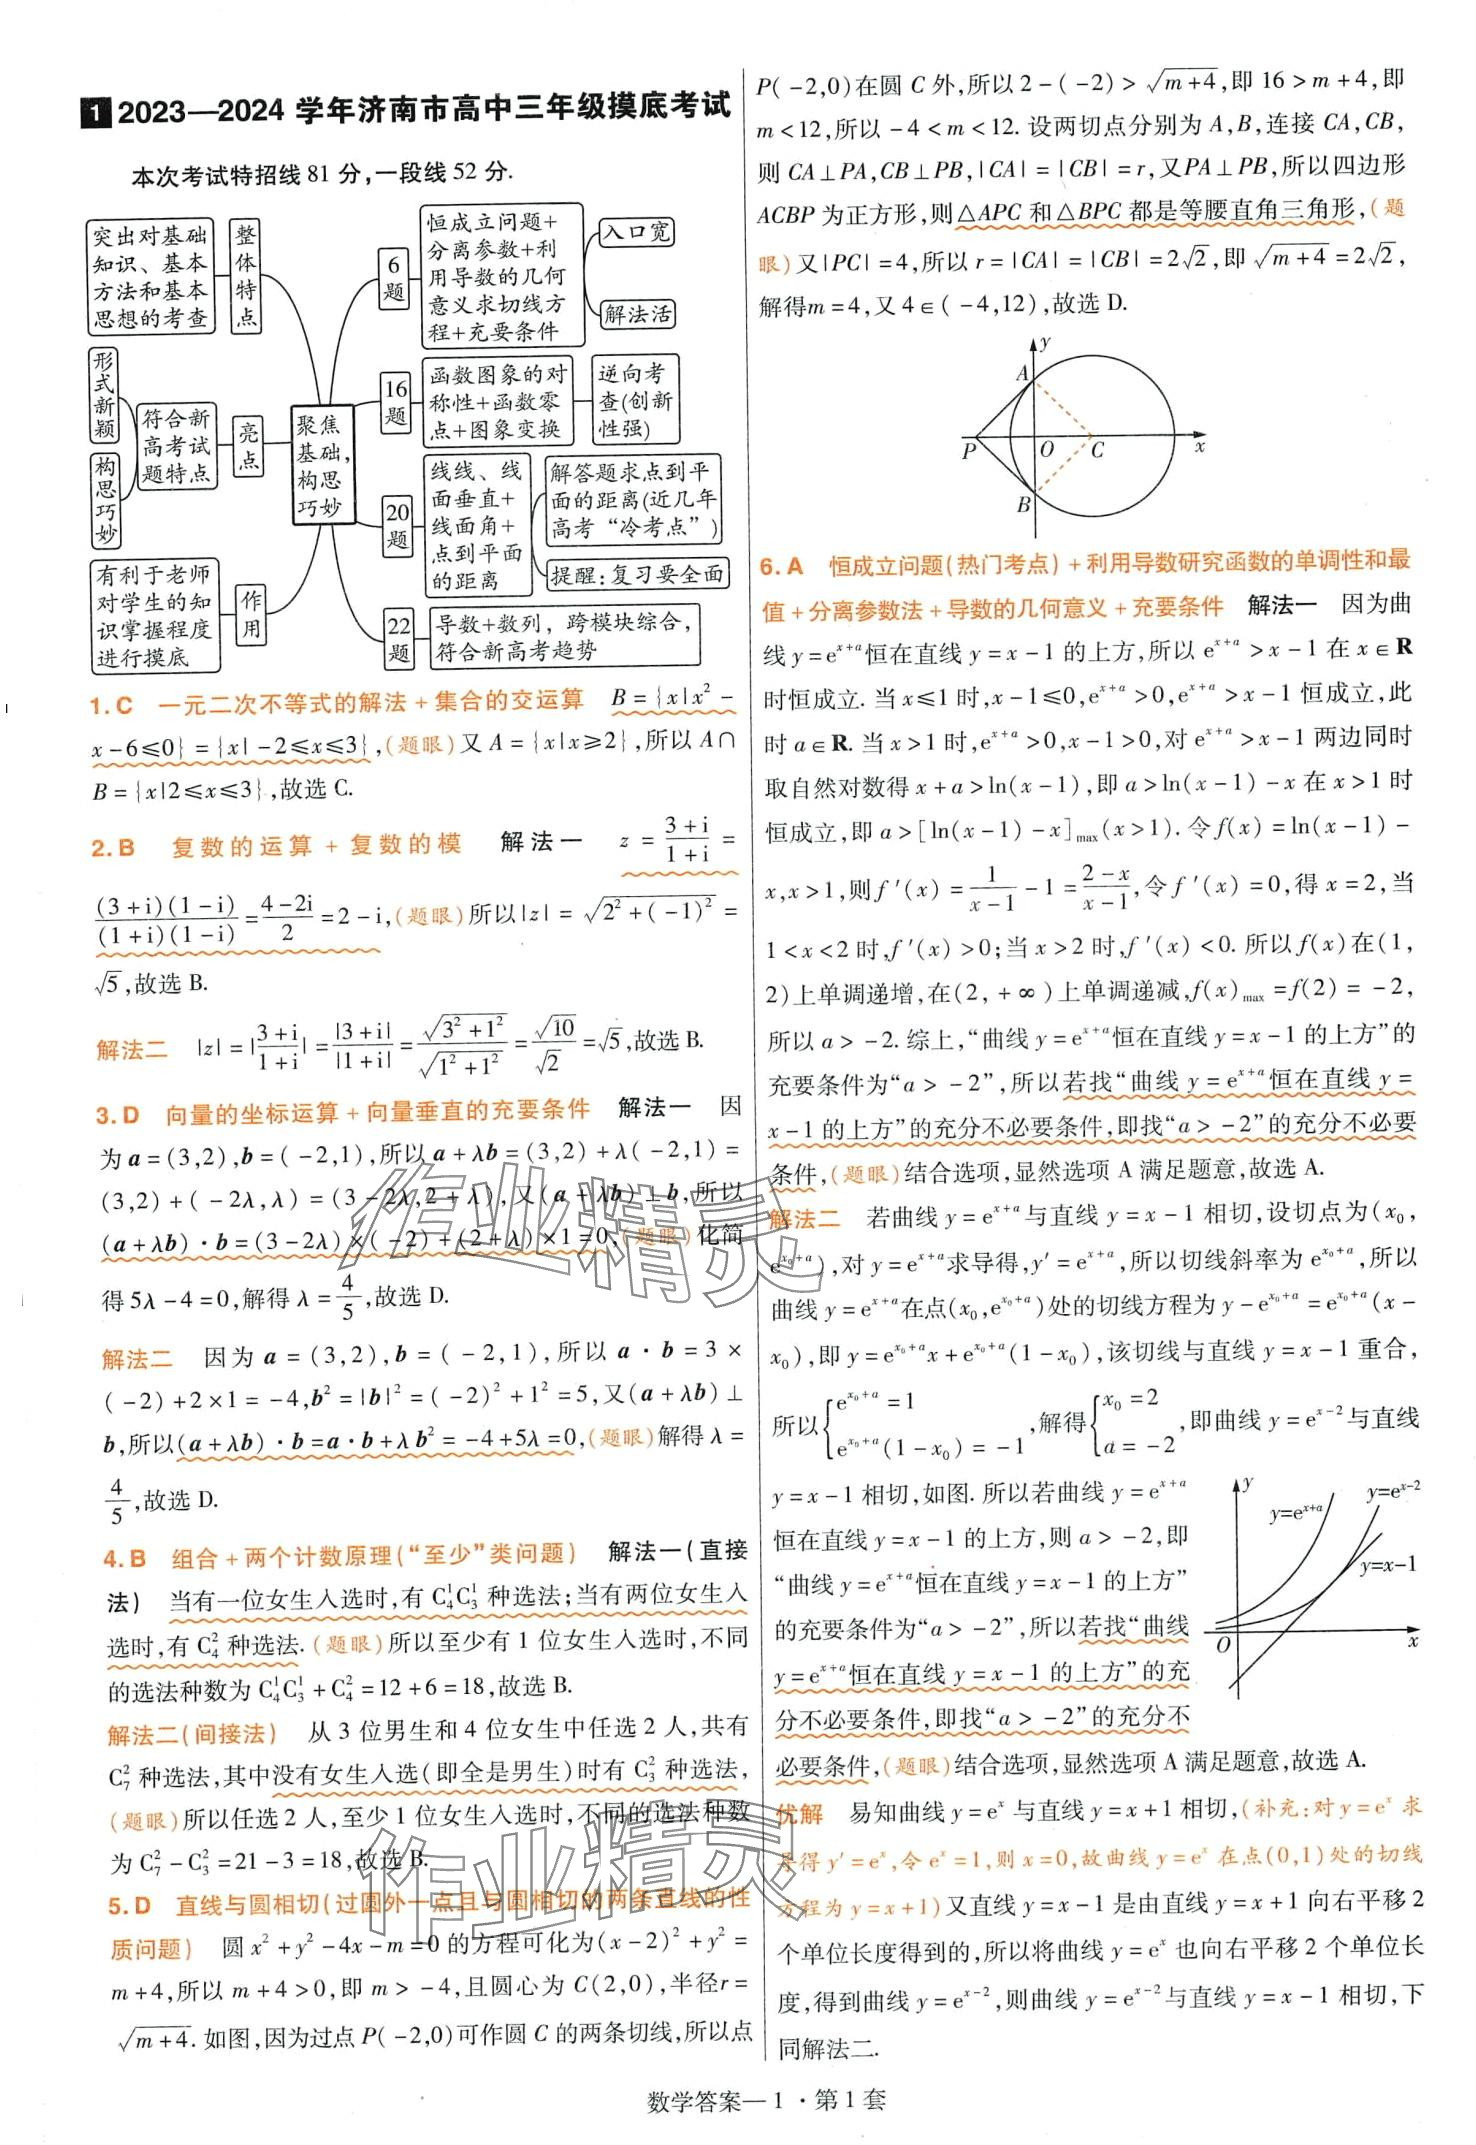 1 2023—2024 学年济南市高中三年级摸底考试
本次考试特招线 81 分,一段线 52 分.
突出对基础
知识、基本
方法和基本
思想的考查
整体特点
形式新颖
构思巧妙
符合新
高考试
题特点
亮点
有利于老师
对学生的知
识掌握程度
进行摸底
作用
聚焦
基础,
构思
巧妙
6
题
恒成立问题+
分离参数+利
用导数的几何
意义求切线方
程+充要条件
入口宽
解法活
16
题
函数图象的对
称性+函数零
点+图象变换
逆向考
查(创新
性强)
20
题
线线、线
面垂直+
线面角+
点到平面
的距离
解答题求点到平
面的距离(近几年
高考“冷考点”)
提醒:复习要全面
22
题
导数+数列，跨模块综合，
符合新高考趋势
1. C 一元二次不等式的解法 + 集合的交运算 B = {x|x² -
x - 6≤0} = {x| -2≤x≤3},(题眼)又 A = {x|x≥2},所以 A∩
B = {x|2≤x≤3},故选 C.
2. B 复数的运算 + 复数的模 解法一 z = (3+i)/(1+i) =
(3+i)(1-i)/(1+i)(1-i) = (4-2i)/2 = 2 - i,(题眼)所以|z| = √(2²+(-1)²) =
√5,故选 B.
解法二 |z| = |(3+i)/(1+i)| = |3+i|/|1+i| = √(3²+1²)/√(1²+1²) = √10/√2 = √5,故选 B.
3. D 向量的坐标运算 + 向量垂直的充要条件 解法一 因
为 a = (3,2),b = ( -2,1),所以 a + λb = (3,2) + λ( -2,1) =
(3,2) + ( -2λ,λ) = (3 - 2λ,2 + λ),又(a + λb)⊥b,所以
(a + λb)·b = (3 - 2λ)×( -2) + (2 + λ)×1 = 0,(题眼)化简
得 5λ - 4 = 0,解得 λ = 4/5,故选 D.
解法二 因为 a = (3,2),b = ( -2,1),所以 a·b = 3 ×
( -2) + 2×1 = -4,b² = |b|² = ( -2)² + 1² = 5,又(a + λb)⊥
b,所以(a + λb)·b = a·b + λb² = -4 + 5λ = 0,(题眼)解得 λ =
4/5,故选 D.
4. B 组合 + 两个计数原理(“至少”类问题) 解法一(直接
法) 当有一位女生入选时,有 C₄¹C₃¹ 种选法;当有两位女生入
选时,有 C₄² 种选法.(题眼)所以至少有 1 位女生入选时,不同
的选法种数为 C₄¹C₃¹ + C₄² = 12 + 6 = 18,故选 B.
解法二(间接法) 从 3 位男生和 4 位女生中任选 2 人,共有
C₇² 种选法,其中没有女生入选(即全是男生)时有 C₃² 种选法,
(题眼)所以任选 2 人,至少 1 位女生入选时,不同的选法种数
为 C₇² - C₃² = 21 - 3 = 18,故选 B.
5. D 直线与圆相切(过圆外一点且与圆相切的两条直线的性
质问题) 圆 x² + y² - 4x - m = 0 的方程可化为(x - 2)² + y² =
m + 4,所以 m + 4 > 0,即 m > -4,且圆心为 C(2,0),半径r =
√(m+4). 如图,因为过点 P( -2,0)可作圆 C 的两条切线,所以点
P( -2,0)在圆 C 外,所以 2 - ( -2) > √(m+4),即 16 > m + 4,即
m < 12,所以 -4 < m < 12. 设两切点分别为 A,B,连接 CA,CB,
则 CA⊥PA,CB⊥PB,|CA| = |CB| = r,又PA⊥PB,所以四边形
ACBP 为正方形,则△APC 和△BPC 都是等腰直角三角形,(题
眼)又|PC| = 4,所以 r = |CA| = |CB| = 2√2,即 √(m+4) = 2√2,
解得m = 4,又 4∈( -4,12),故选 D.
y
A
P
O
C
x
B
6. A 恒成立问题(热门考点) + 利用导数研究函数的单调性和最
值 + 分离参数法 + 导数的几何意义 + 充要条件 解法一 因为曲
线 y = eˣ⁺ᵃ恒在直线 y = x - 1 的上方,所以 eˣ⁺ᵃ > x - 1 在 x∈R
时恒成立. 当 x≤1 时,x - 1≤0,eˣ⁺ᵃ > 0,eˣ⁺ᵃ > x - 1 恒成立,此
时 a∈R. 当 x > 1 时,eˣ⁺ᵃ > 0,x - 1 > 0,对 eˣ⁺ᵃ > x - 1 两边同时
取自然对数得 x + a > ln(x - 1),即 a > ln(x - 1) - x 在 x > 1 时
恒成立,即 a > [ln(x - 1) - x]max(x > 1). 令 f(x) = ln(x - 1) -
x,x > 1,则 f ′(x) = 1/(x-1) - 1 = (2-x)/(x-1),令 f ′(x) = 0,得 x = 2,当
1 < x < 2 时,f ′(x) > 0;当 x > 2 时,f ′(x) < 0. 所以 f(x)在(1,
2)上单调递增,在(2, + ∞)上单调递减,f(x)max = f(2) = -2,
所以 a > -2. 综上,“曲线 y = eˣ⁺ᵃ恒在直线 y = x - 1 的上方”的
充要条件为“a > -2”,所以若找“曲线 y = eˣ⁺ᵃ恒在直线 y =
x - 1 的上方”的充分不必要条件,即找“a > -2”的充分不必要
条件,(题眼)结合选项,显然选项 A 满足题意,故选 A.
解法二 若曲线 y = eˣ⁺ᵃ与直线 y = x - 1 相切,设切点为(x₀,
e^(x₀+a)),对 y = eˣ⁺ᵃ求导得,y′ = eˣ⁺ᵃ,所以切线斜率为 e^(x₀+a),所以
曲线 y = eˣ⁺ᵃ在点(x₀,e^(x₀+a))处的切线方程为 y - e^(x₀+a) = e^(x₀+a)(x -
x₀),即 y = e^(x₀+a)x + e^(x₀+a)(1 - x₀),该切线与直线 y = x - 1 重合,
所以{e^(x₀+a) = 1, e^(x₀+a)(1 - x₀) = -1,解得{x₀ = 2, a = -2,即曲线 y = eˣ⁻²与直线
y = x - 1 相切,如图. 所以若曲线 y = eˣ⁺ᵃ
恒在直线 y = x - 1 的上方,则 a > -2,即
“曲线 y = eˣ⁺ᵃ恒在直线 y = x - 1 的上方”
的充要条件为“a > -2”,所以若找“曲线
y = eˣ⁺ᵃ恒在直线 y = x - 1 的上方”的充
分不必要条件,即找“a > -2”的充分不
必要条件,(题眼)结合选项,显然选项 A 满足题意,故选 A.
y
y=eˣ⁺ᵃ
y=eˣ⁻²
y=x-1
O
x
优解 易知曲线 y = eˣ 与直线 y = x + 1 相切,(补充:对 y = eˣ 求
导得 y′ = eˣ,令 eˣ = 1,则 x = 0,故曲线 y = eˣ 在点(0,1)处的切线
方程为 y = x + 1)又直线 y = x - 1 是由直线 y = x + 1 向右平移 2
个单位长度得到的,所以将曲线 y = eˣ 也向右平移 2 个单位长
度,得到曲线 y = eˣ⁻²,则曲线 y = eˣ⁻²与直线 y = x - 1 相切,下
同解法二.
数学答案—1·第 1 套
作业精灵
作业精灵